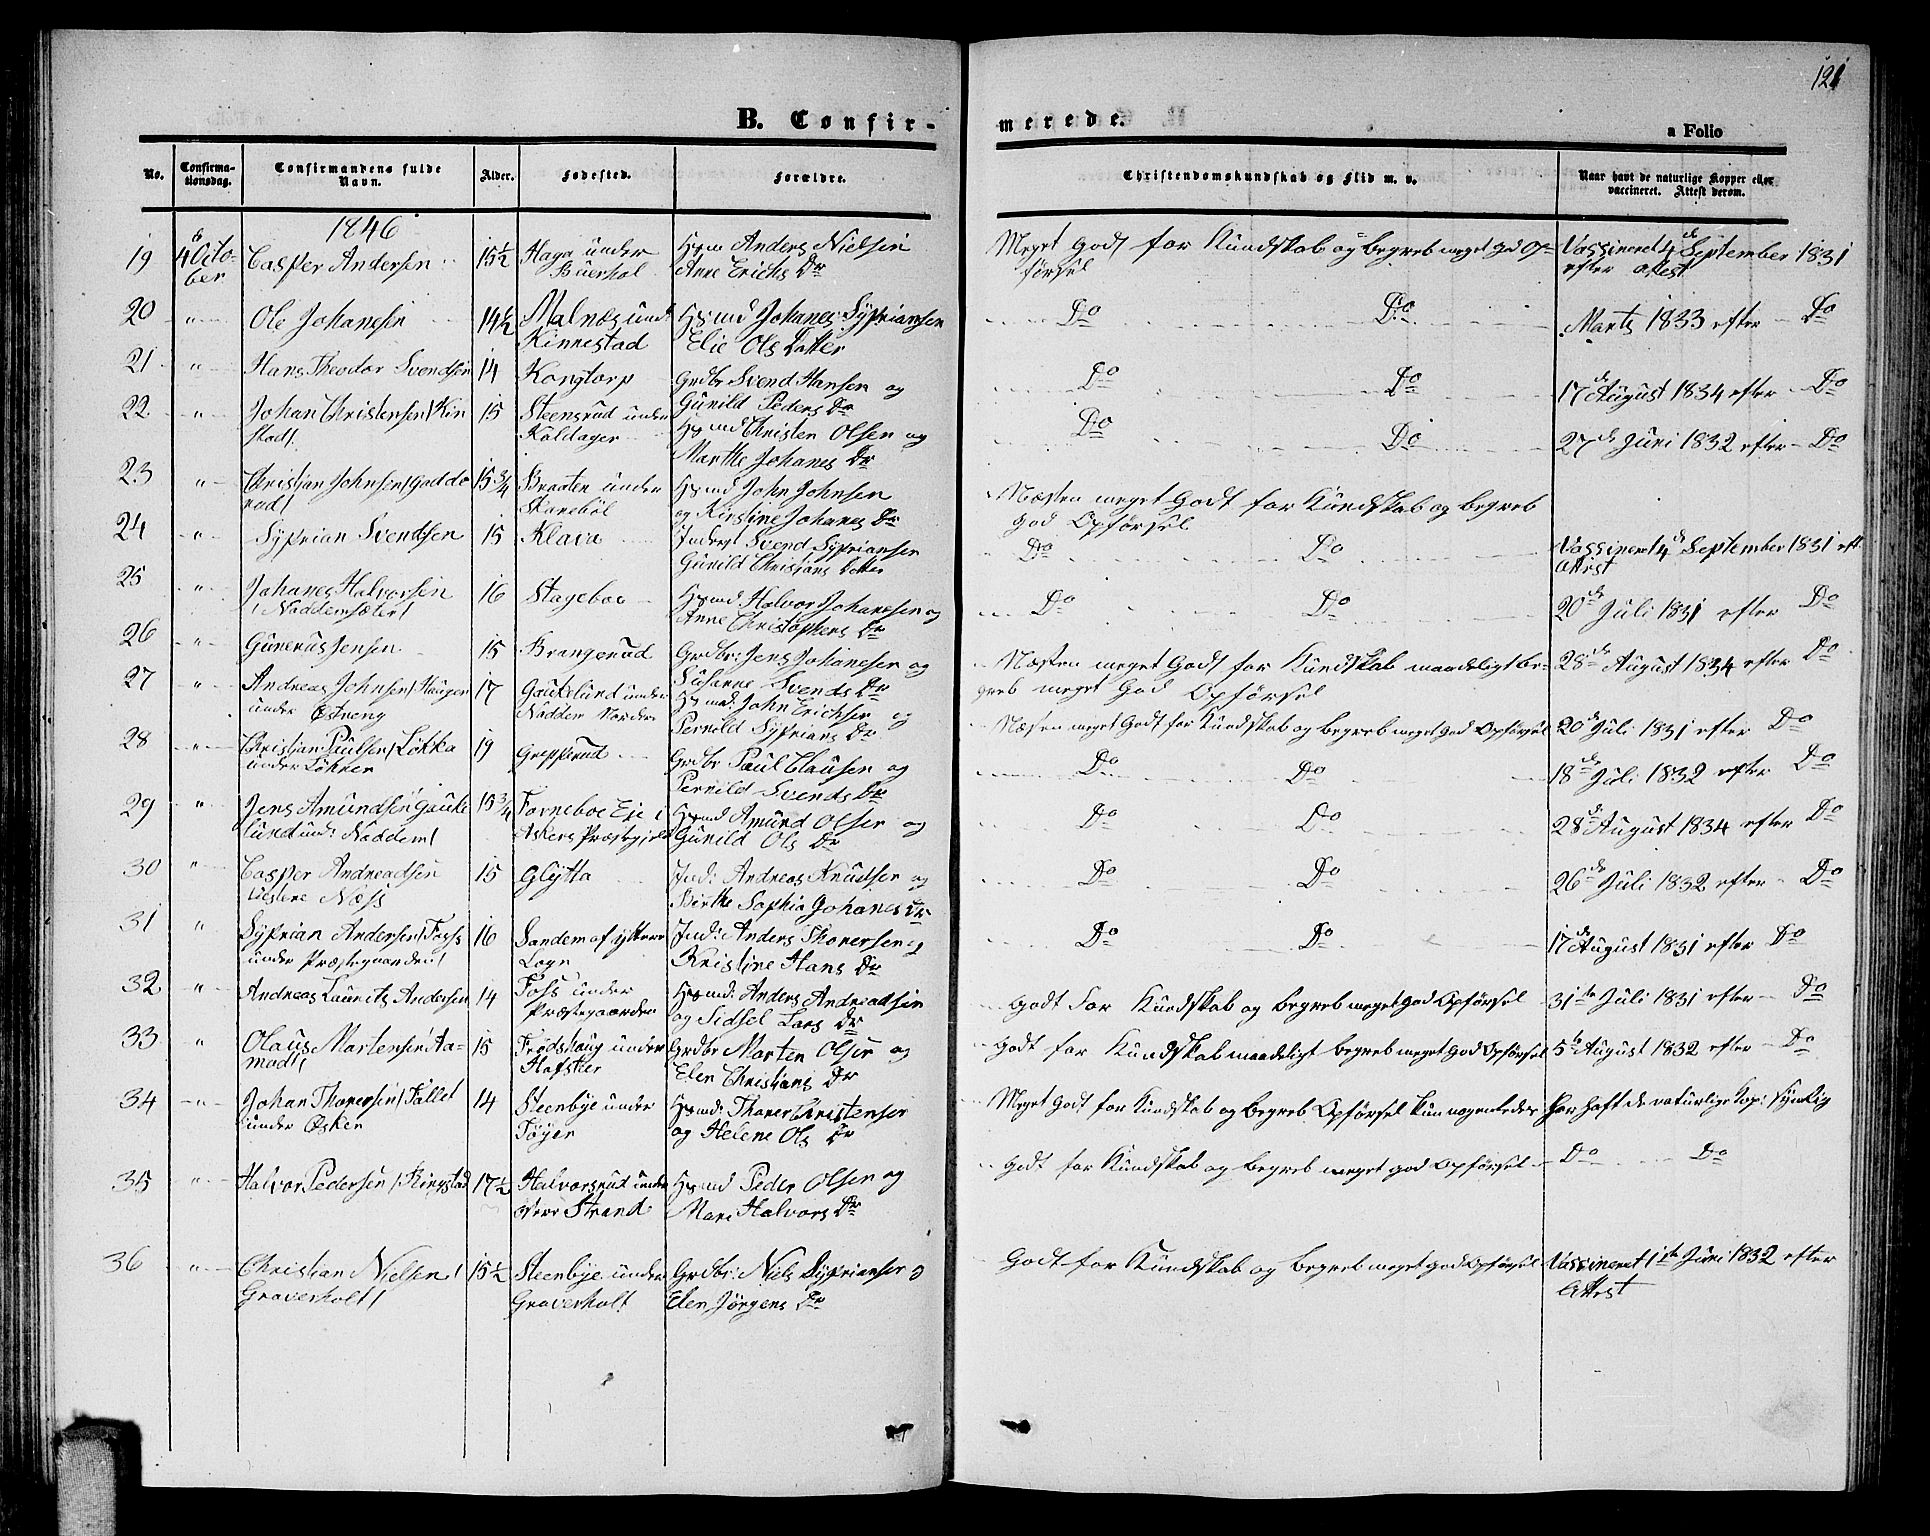 121
B. Confir-
merede.
a Folio
No.
Confirma-
tionsdag.
Confirmandens fulde
Navn.
Alder.
Fødested.
Forældre.
Christendomskundskab og Flid m. v.
Naar havt de naturlige Kopper eller
vaccineret. Attest derom.
1846
19 4de Octo-
ber Casper Andersen 15½ Haga under Hsmd Anders Nielsen
Anne Erichs Dr
Meget Godt for Kundskab og Begreb meget god Op-
førsel
Vassineret 4de September 1831
efter Attest
20 " Ole Johanesen 14½ Malnæs und: Hsmd Johanes Sypriansen
Kinnestad Elie Ols Datter
Do Do Marts 1833 efter Do
21 " Hans Theodor Svendsen 14 Kongtorp Grdbr Svend Hansen og
Gunild Peders Dr
Do Do 17de August 1834 efter Do
22 " Johan Christensen / Kin 15 Steensrud under Hsmd Christen Olsen og
stad / Koldager Marthe Johanes Dr
Do Do 27de Juni 1832 efter Do
23 " Christian Johnsen / Gaddo 15¾ Braaten under Hsmd John Johnsen
rud / Skorebøl og Kirstine Johanes Dr
Næsten meget Godt for Kundskab og Begreb
god Opførsel
24 " Syprian Svendsen 15 Klava Inderst Svend Sypriansen
Gunild Christians Datter
Do Do Vassineret 4de September 1831 eft
Attest
25 " Johanes Halvorsen 16 Stageboe Hsmd Halvor Johanesen og
/ Naddemsæter / Anne Christophers Dr
Do Do 20de Juli 1831 efter Do
26 " Gunerus Jensen 15 Brangerud Grdbr: Jens Johanesen og
Susanne Svends Dr
Næsten meget Godt for Kundskab maadeligt Be-
greb meget God Opførsel
28de August 1834 efter Do
27 " Andreas Johnsen / Hauger 17 Gaukelund under Hsmd: John Erichsen og
under Østreng Naddem Nordre Pernild Syprians Dr
Næsten meget Godt for Kundskab og Begreb meget God Opførsel 20de Juli 1831 efter Do
28 " Christian Paulsen / Løkka 19 Grepperud Grdbr Paul Clausen og
under Løkner Pernild Svends Dr
Do Do 18de Juli 1832 efter Do
29 " Jens Amundsen Gauke 15¾ Forneboe Eje i Hsmd Amund Olsen og
lund und: Naddem / Askers Præstegjeld Gunild Ols Dr
Do Do 28de August 1834 efter Do
30 " Casper Andreadsen 15 Glytta Ind: Andreas Knudsen og
Vestere Næss Birthe Sophia Johanes Dr
Do Do 26de Juli 1832 efter Do
31 " Syprian Andersen / Foss 16 Sandem af yttere Ind: Anders Thoresen og
under Præstegaarden / Sogn Kristine Hans Dr
Do Do 17de August 1831 efter Do
32 " Andreas Laurits Andersen 14 Foss under Hsmd: Anders Andreadsen
Præstegaarden og Sidsel Lars Dr
Godt for Kundskab og Begreb meget God Opførsel 31te Juli 1831 efter Do
33 " Olaus Martensen / Aa- 15 Frødshaug under Grdbr Morten Olsen og
modt / Hafsker Elen Christians Dr
Godt for Kundskab maadeligt Begreb meget God Opførsel 5te August 1832 efter Do
34 " Johan Thoresen / Fallet 14 Steenbye under Hsmd: Thorer Christensen
under Osken Tøyen og Helene Ols Dr
Meget Godt for Kundskab og Begreb Opførsel kun nogenledes har haft de naturlige Kop: synlig
35 " Halvor Pedersen / Ringstad 17½ Halvorsrud under Hsmd Peder Olsen og
Øvre Strand Mari Halvors Dr
Godt for Kundskab og Begreb meget god Opførsel Do Do
36 " Christian Nielsen / 15½ Steenbye under Grdbr: Niels Syprianser og
Graverholt / Graverholt Elen Jørgens Dr
Godt for Kundskab og Begreb meget God Opførsel Vassineret 1te Juni 1832 efter
Attest